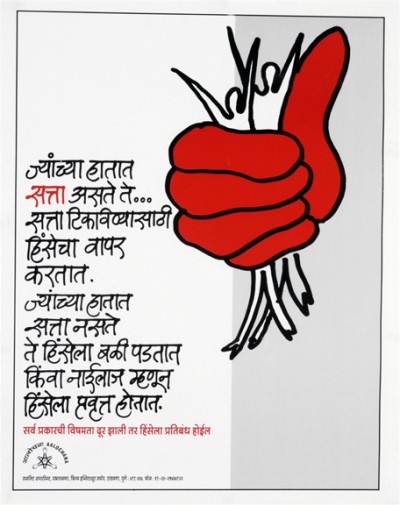 ज्यांच्या हातात
सत्ता असते ते...
सत्ता टिकविण्यासाठी
हिंसेचा वापर
करतात.
ज्यांच्या हातात
सत्ता नसते
ते हिंसेला बळी पडतात
किंवा नाईलाज म्हणून
हिंसेला प्रवृत्त होतात.
सर्व प्रकारची विषमता दूर झाली तर हिंसेला प्रतिबंध होईल
AALOCHANA